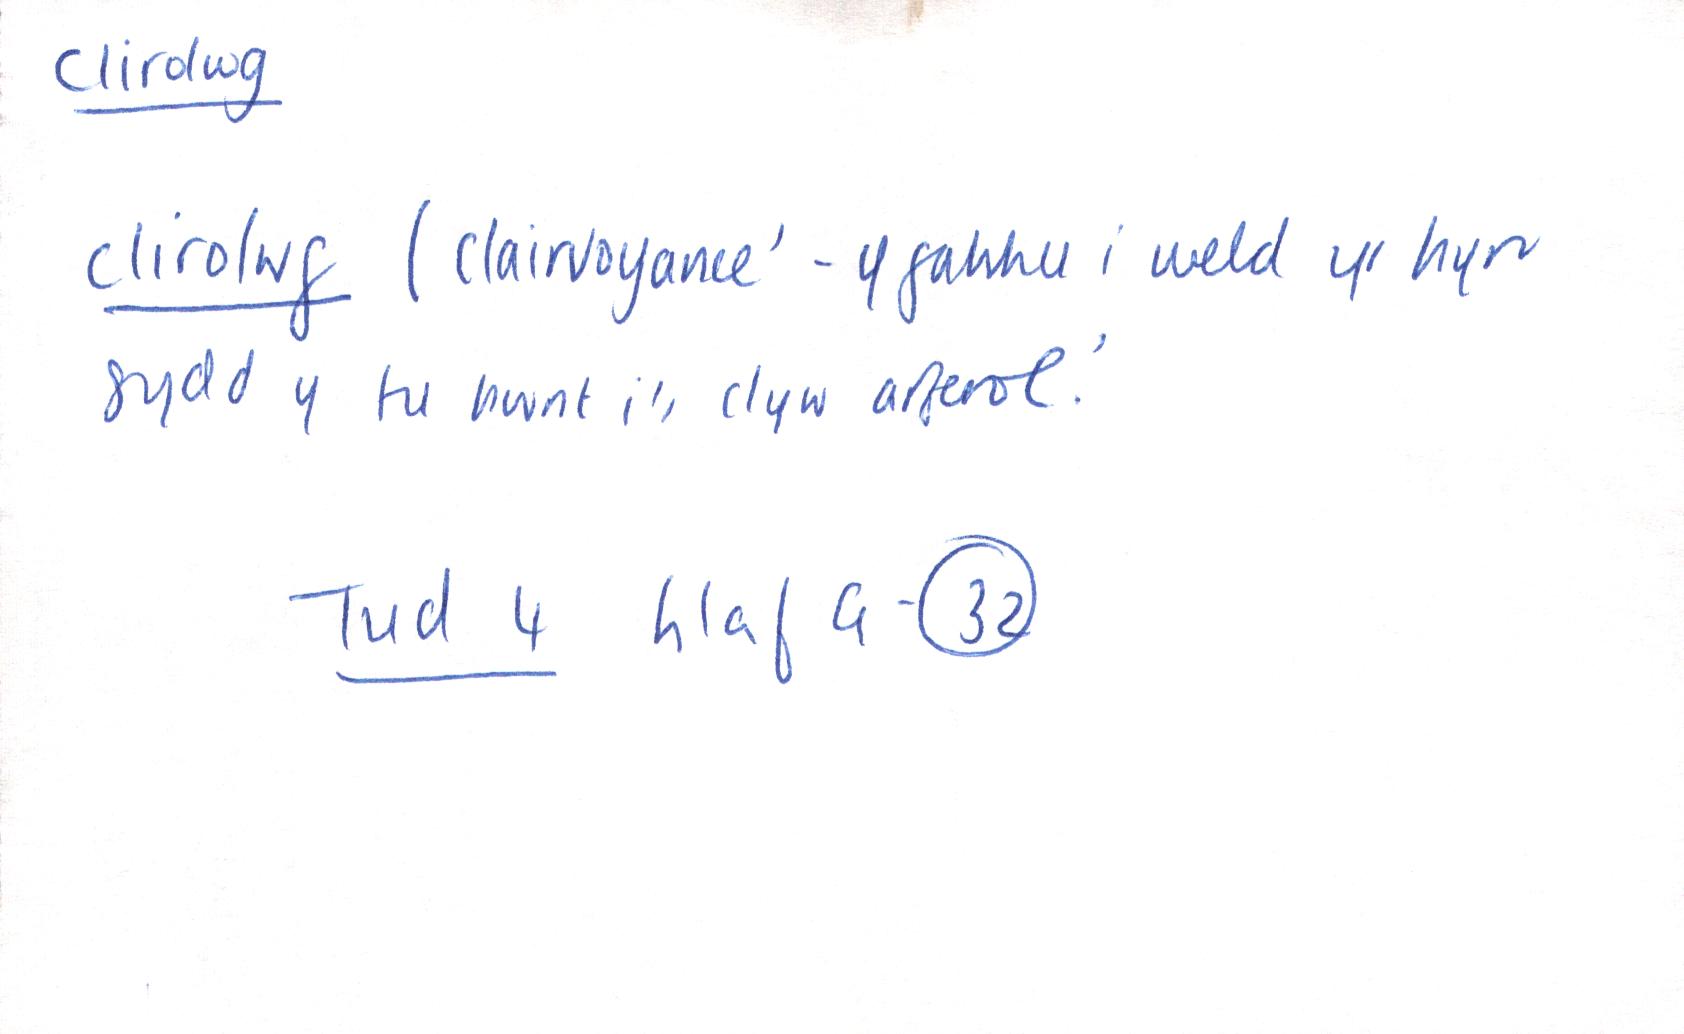 Clirolwg
clirolwg ( Clairvoyance' - y gallu i weld yr hyn
sydd y tu hwnt i'r clyw arferol.'
Tud 4 G - 32